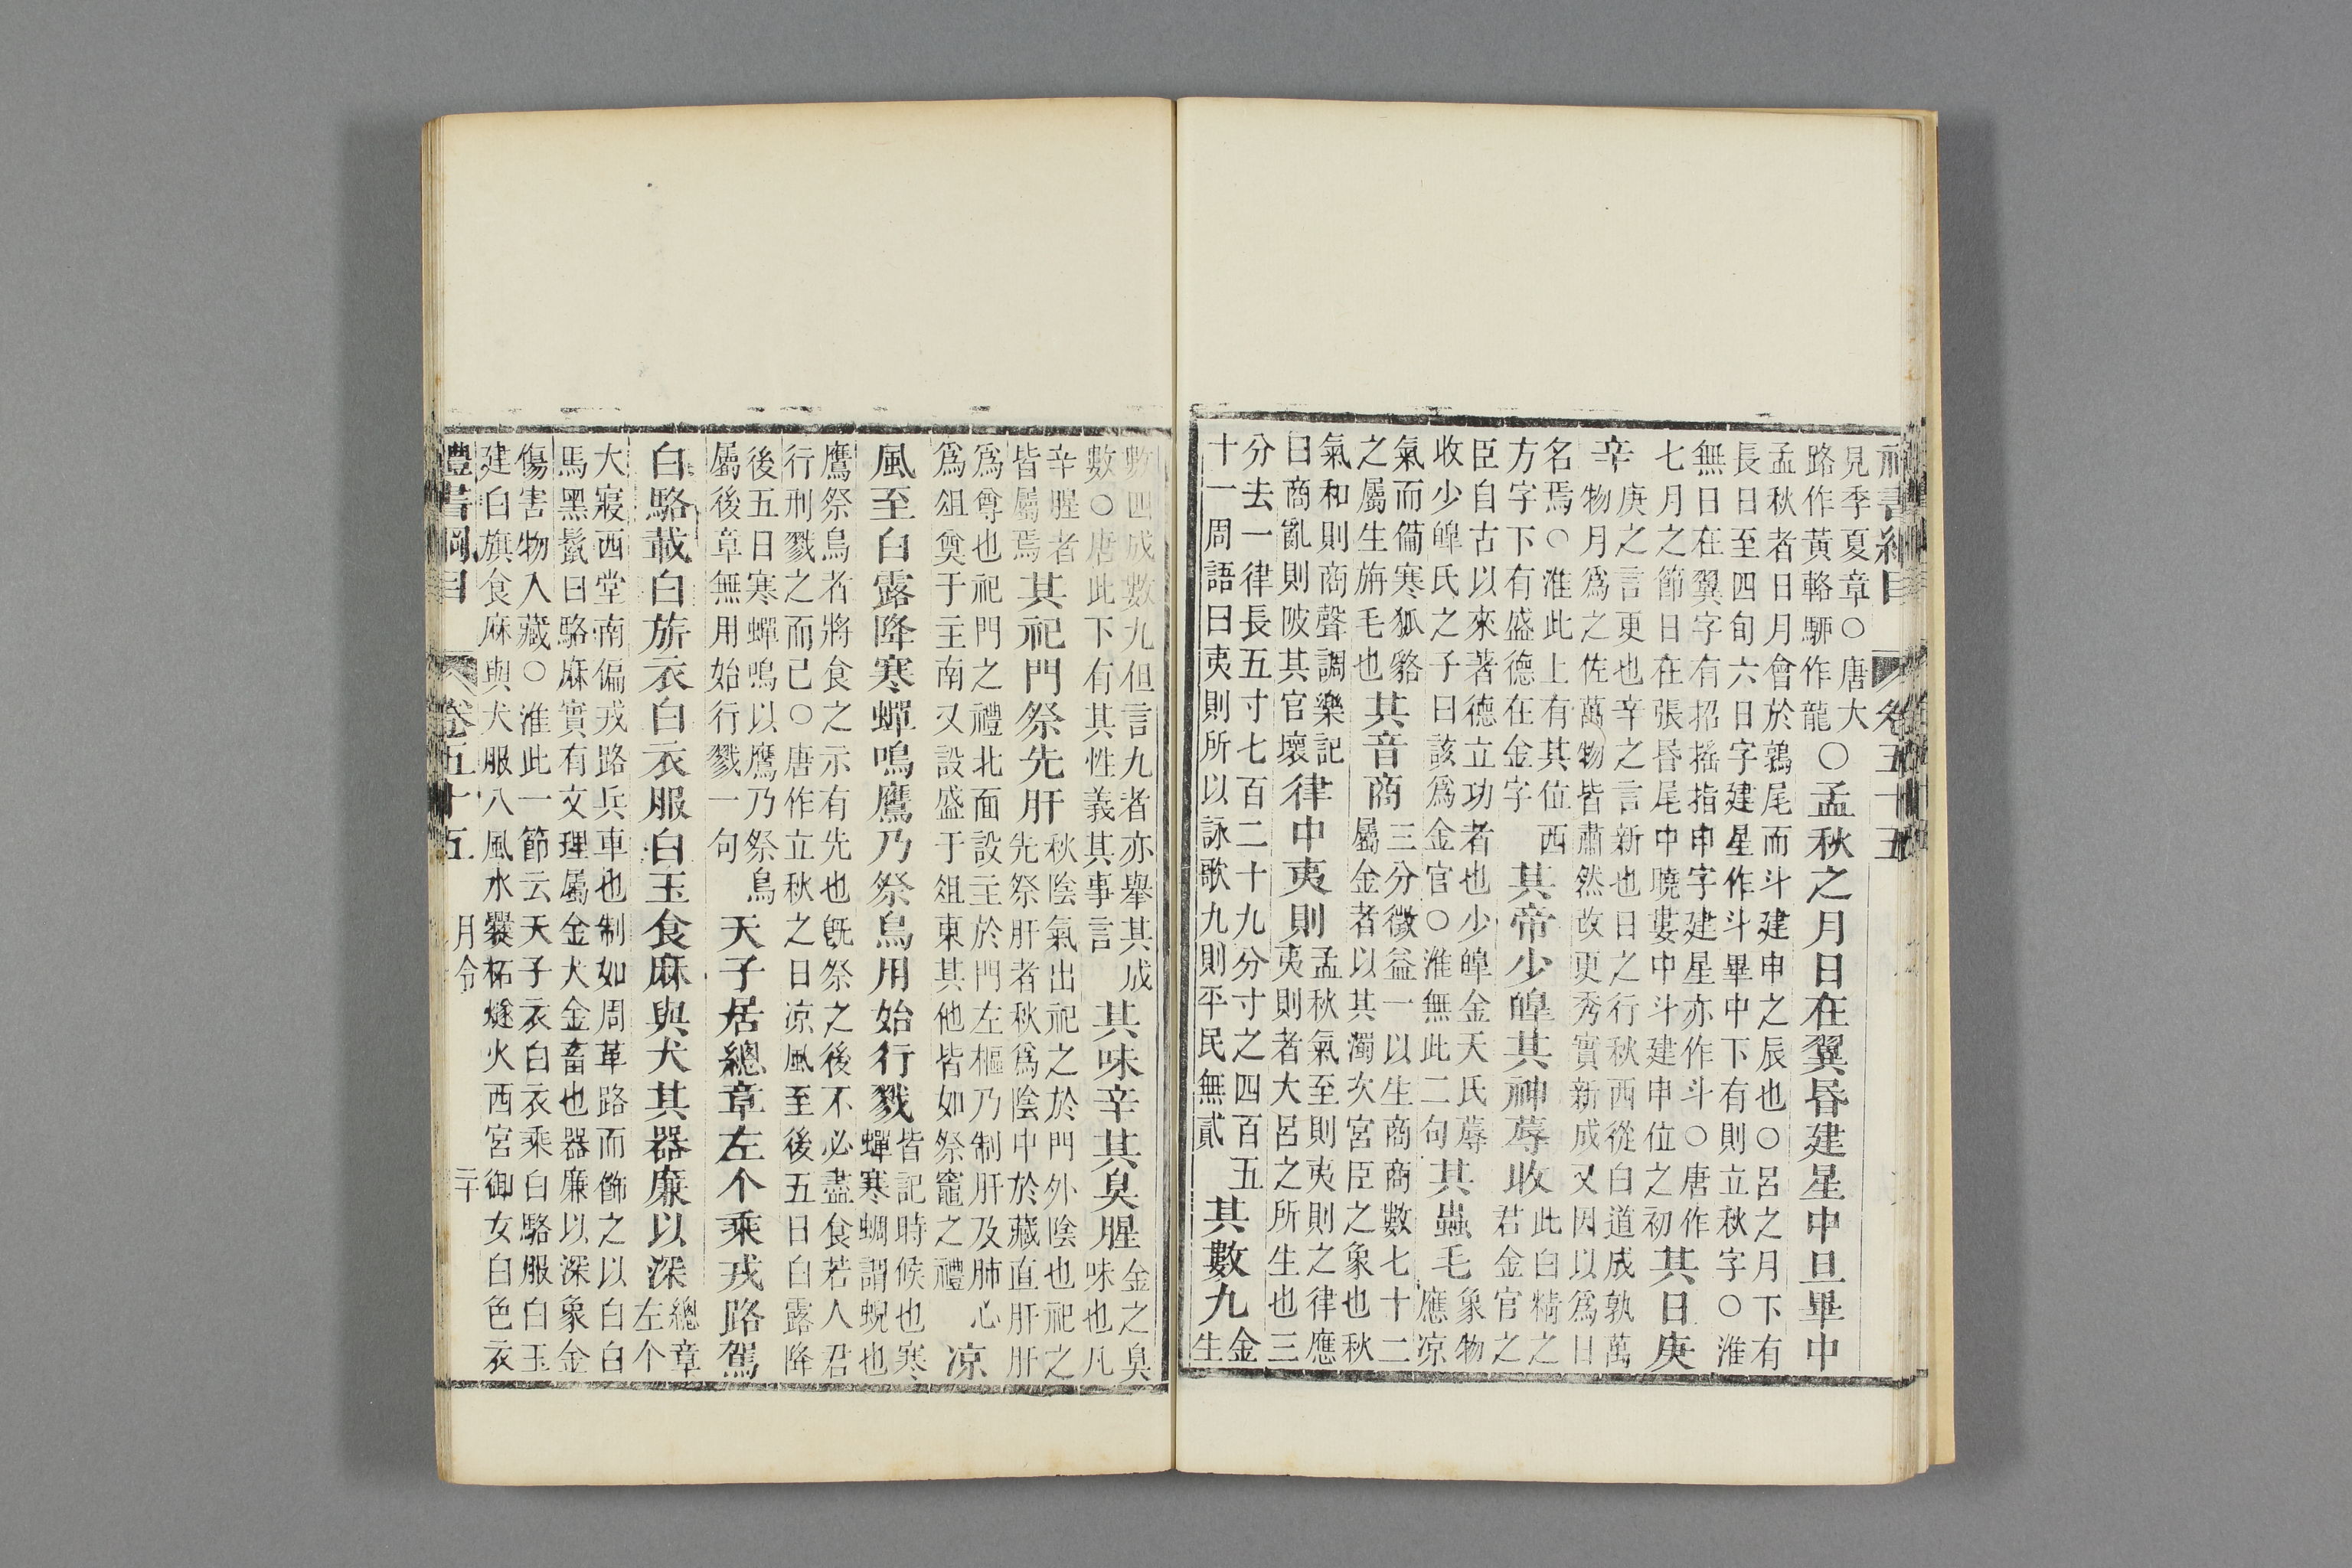 卷五十五
見季夏章○唐大
路作黃輅駵作龍
○孟秋之月日在翼昏建星中旦畢中
孟秋者日月會於鶉尾而斗建申之辰也○呂之月下有
長日至四旬六日字建星作斗畢中下有則立秋字○淮
無日在翼字有招搖指申字建星亦作斗○唐作
七月之節日在張昏尾中曉婁中斗建申位之初
其日庚
辛
庚之言更也辛之言新也日之行秋西從白道成孰萬
物月爲之佐萬物皆肅然改更秀實新成又因以爲日
名焉○淮此上有其位西
方字下有盛德在金字
其帝少皡其神蓐收
此白精之
君金官之
臣自古以來著德立功者也少皡金天氏蓐
收少皡氏之子曰該爲金官○淮無此二句
其蟲毛
象物
應凉
氣而備寒狐貉
之屬生旃毛也
其音商
三分徵益一以生商商數七十二
屬金者以其濁次宮臣之象也秋
氣和則商聲調樂記
曰商亂則陂其官壞
律中夷則
孟秋氣至則夷則之律應
夷則者大呂之所生也三
分去一律長五寸七百二十九分寸之四百五
十一周語曰夷則所以詠歌九則平民無貳
其數九
金
生
數四成數九但言九者亦舉其成
數○唐此下有其性義其事言
其味辛其臭腥
金之臭
味也凡
辛腥者
皆屬焉
其祀門祭先肝
秋陰氣出祀之於門外陰也祀之
先祭肝者秋爲陰中於藏直肝肝
爲尊也祀門之禮北面設主於門左樞乃制肝及肺心
爲俎奠于主南又設盛于俎東其他皆如祭竈之禮
凉
風至白露降寒蟬鳴鷹乃祭鳥用始行戮
皆記時候也寒
蟬寒蜩謂蜺也
鷹祭鳥者將食之示有先也旣祭之後不必盡食若人君
行刑戮之而已○唐作立秋之日凉風至後五日白露降
後五日寒蟬鳴以鷹乃祭鳥
屬後章無用始行戮一句
天子居總章左个乘戎路駕
白駱載白旂衣白衣服白玉食麻與犬其器廉以深
總章
左个
大寢西堂南偏戎路兵車也制如周革路而飾之以白白
馬黑鬣曰駱麻實有文理屬金犬金畜也器廉以深象金
傷害物入藏○淮此一節云天子衣白衣乘白駱服白玉
建白旗食麻與犬服八風水爨柘燧火西宮御女白色衣
禮書綱目 卷五十五 月令 二十